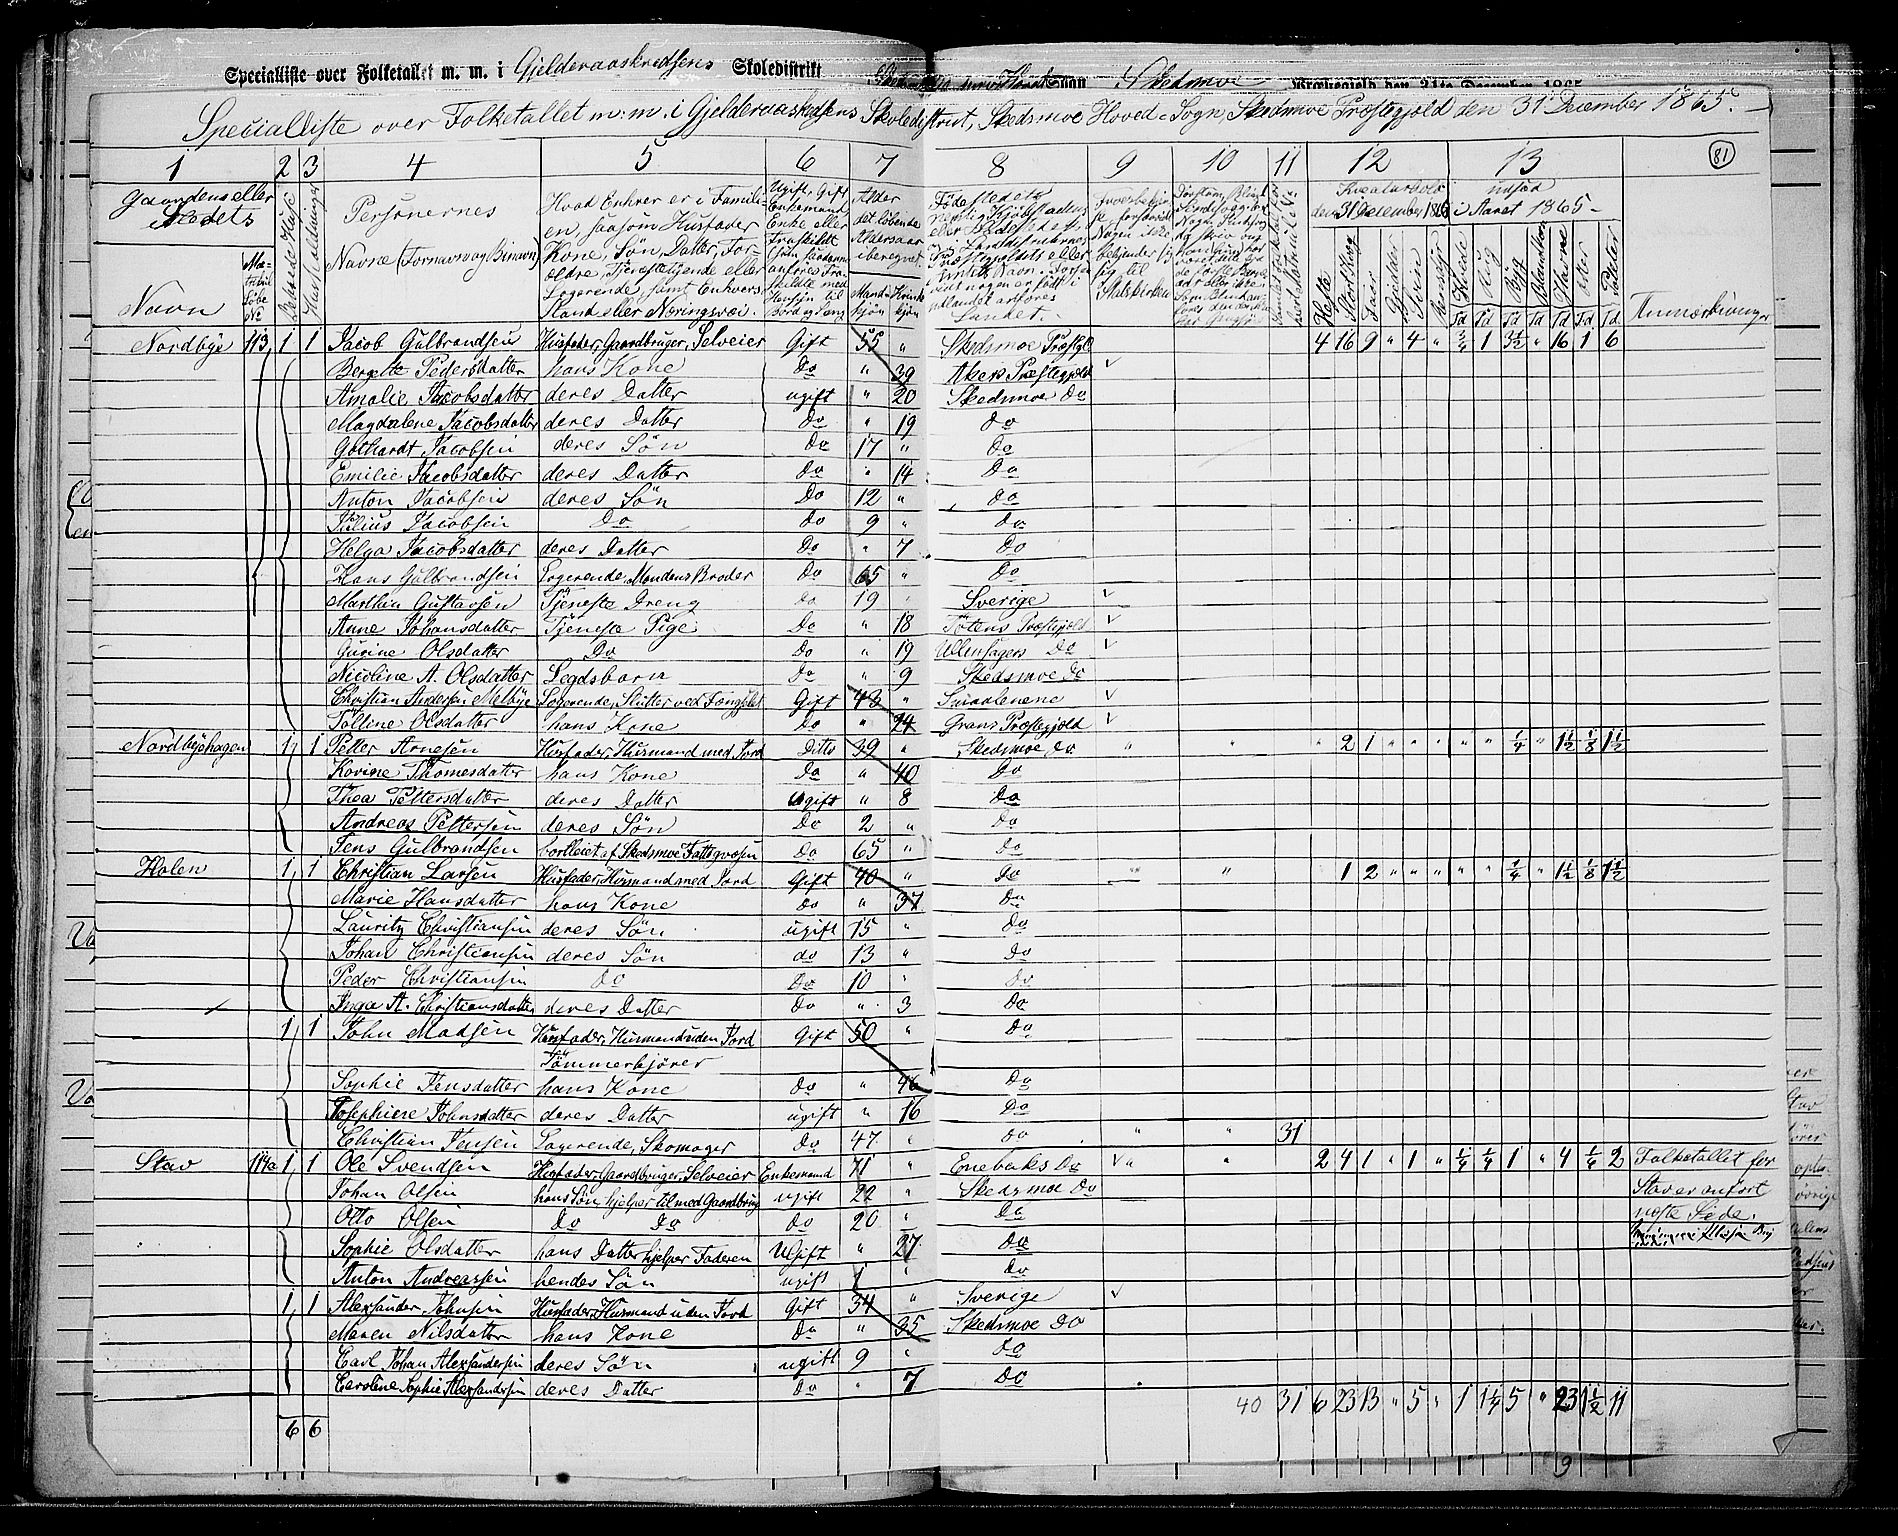 Specialliste over Folketallet m. m. i Gjelderaaskredsens Skoledistrikt Sogn Skedsmoe Præstegjeld den 31te December 1865
Specialliste over Folketallet m: m. i Gjelderaaskredsens Skoledistrict, Skedsmoe Hoved-Sogn, Skedsmoe Præstegjeld den 31 December 1865.
1 2 3 4 5 6 7 8 9 10 11 12 13 81
Gaardens eller Stedets
Navn
Beboede Huse
Husholdninger
Personernes
Navne (Fornavn og Binavn)
Hvad Enhver er i Familien, saasom Husfader, Kone, Søn, Datter, Forældre, Tjenestetyende eller Logerende, samt Enhvers Stand eller Næringsvei.
Fødestedets
Kreaturhold den 31 December 1865
Udsæd i Aaret 1865
Heste Stort Kvæg Faar Gjeder Sviin Rensdyr Hvede Rug Byg Blandkorn Havre Erter Poteter
Anmærkninger
Nordbye 113 1 1 Jacob Gulbrandsen Husfader, Gaardbruger, Selveier Gift 55 " Skedsmoe Præstgl 4 16 9 " 4 " 3/4 1 3 1/2 " 16 1 6
Bergette Pedersdatter hans Kone Do " 39 Akers Præstegjeld v
Amalie Jacobsdatter deres Datter ugift " 20 Skedsmoe Do
Magdalene Jacobsdatter deres Datter Do " 19 Do
Gothardt Jacobsen deres Søn Do 17 " Do
Emilie Jacobsdatter deres Datter Do " 14 Do
Anton Jacobsen deres Søn Do 12 " Do
Julius Jacobsen Do Do 9 " Do
Helga Jacobsdatter deres Datter Do " 7 Do
Hans Gulbrandsen Logerende, Mandens Broder Do 65 " Do
Marthin Gustavsen Tjeneste Dreng Do 19 " Sverige v
Anne Johansdatter Tjeneste Pige Do " 18 Totens Præstegjeld v
Gurine Olsdatter Do Do " 19 Ullensagers Do v
Nicoline A. Olsdatter Legdsbarn Do " 9 Skedsmoe Do
Christian Andersen Melbye Logerende, Slutter ved Fængslet Gift 48 " Smaalenene v
Olsdatter hans Kone Do " 24 Grans Præstegjeld v
Nordbyehagen 1 1 Petter Arnesen Husfader, Husmand med Jord Ditto 39 " Skedsmoe Do " " " 2 1 " " " " " 1/4 " 1 1/2 1/8 1 1/2
Karine Thomesdatter hans Kone Do " 40 Do
Thea Pettersdatter deres Datter Ugift " 8 Do
Andreas Pettersen deres Søn Do 2 " Do
Jens Gulbrandsen bortleiet af Skedsmoe Fattigvæsen Do 65 " Do
Holen 1 1 Christian Larsen Husfader, Husmand med Jord Gift 40 " Do " " 1 2 " " " " " 1/4 " 1 1/2 1/8 1 1/2
Marie Hansdatter hans Kone Do " 37 Do
Lauritz Christiansen deres Søn ugift 15 " Do
Johan Christiansen deres Søn do 13 " Do
Peder Christiansen Do Do 10 " Do
Inga A. Christiansdatter deres Datter Do " 3 Do
1 1 John Madsen Husfader, Husmand uden Jord Gift 50 " Do
Tømmerkjører
Sophie Jensdatter hans Kone Do " 46 Do
Josephine Johnsdatter deres Datter ugift " 16 Do
Christian Jensen Logerende, Skomager Do 47 " Do " " 31
Stav 114a 1 1 Ole Svendsen Husfader, Gaardbruger, Selveier Enkemand 71 " Enebaks Do v " " 2 4 1 " 1 " 1/4 1/4 1 " 4 1/4 2 Folketallet for
Johan Olsen hans Søn, hjelper til med Gaardbrug ugift 22 " Skedsmoe Do Stav er anført
Otto Olsen Do Do Do 20 " Do næste Side.
Sophie Olsdatter hans Datter hjelper Faderen Ugift " 27 Do
Anton Andreassen hendes Søn ugift 1 " Do
1 1 Alexander Johnsen Husfader, Husmand uden Jord Gift 34 " Sverige v
Maren Nilsdatter hans Kone Do " 35 Skedsmoe Do
Carl Johan Alexandersen deres Søn ugift 9 " Do
Caroline Sophie Alexandersen deres Datter Do " 7 Do
40 31 6 23 13 " 5 " 1 1 1/4 5 " 23 1 1/2 11
6 6
9